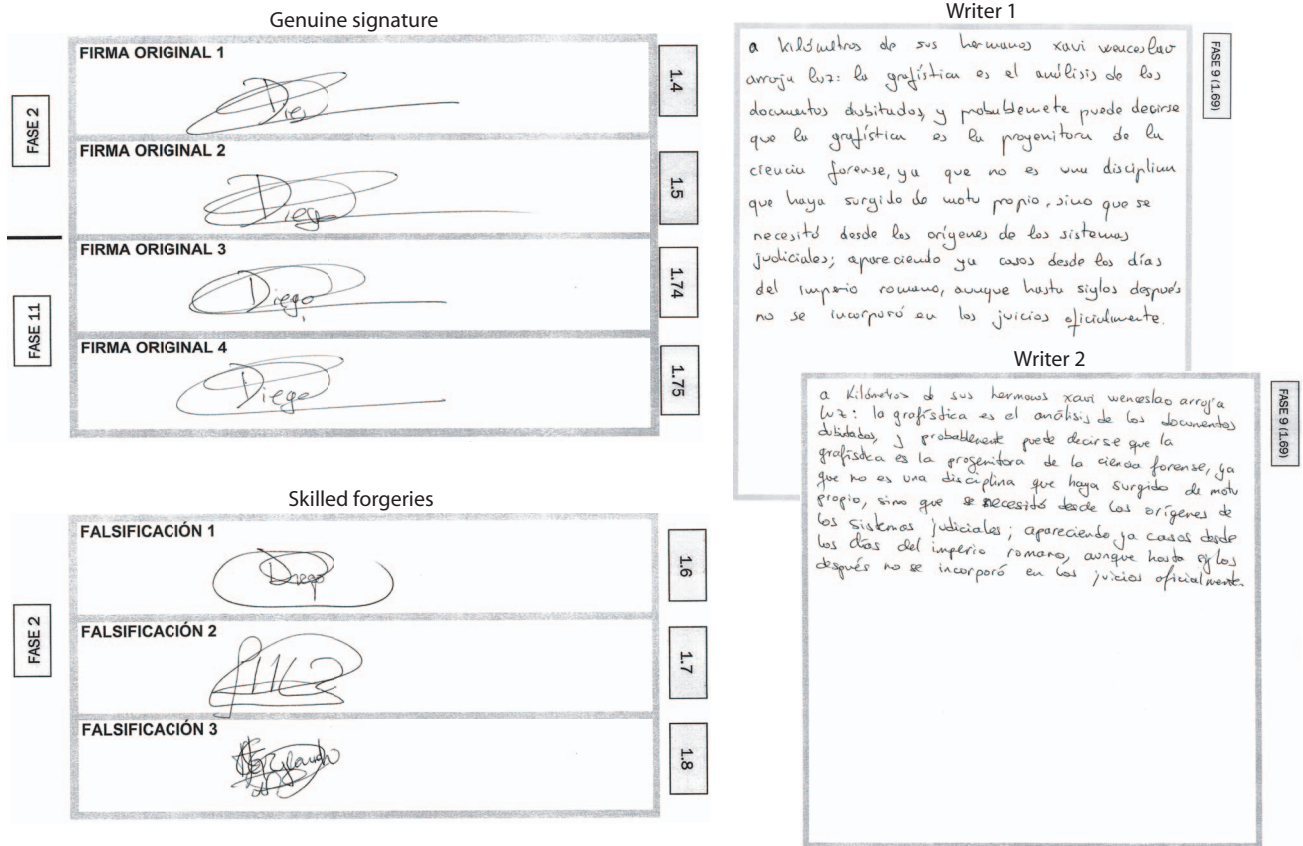 Genuine signature
FIRMA ORIGINAL 1
Diego
1.4
FASE 2
FIRMA ORIGINAL 2
Diego
1.5
FIRMA ORIGINAL 3
Diego
1.74
FASE 11
FIRMA ORIGINAL 4
Diego
1.75
Skilled forgeries
FALSIFICACIÓN 1
Diego
1.6
FASE 2
FALSIFICACIÓN 2
1.7
FALSIFICACIÓN 3
1.8
Writer 1
FASE 9 (1.69)
a kilómetros de sus hermanos xavi wenceslao
arroja luz: la grafística es el análisis de los
documentos dubitados, y probablemete puede decirse
que la grafística es la progenitora de la
ciencia forense, ya que no es una disciplina
que haya surgido de motu propio, sino que se
necesitó desde los orígenes de los sistemas
judiciales; apareciendo ya casos desde los días
del imperio romano, aunque hasta siglos después
no se incorporó en los juicios oficialmente.
Writer 2
FASE 9 (1.69)
a Kilómetros de sus hermanos xavi wenceslao arroja
luz: la grafística es el análisis de los documentos
dubitados, y probablemente puede decirse que la
grafística es la progenitora de la ciencia forense, ya
que no es una disciplina que haya surgido de motu
propio, sino que se necesitó desde los orígenes de
los sistemas judiciales; apareciendo ya casos desde
los días del imperio romano, aunque hasta siglos
después no se incorporó en los juicios oficialmente.